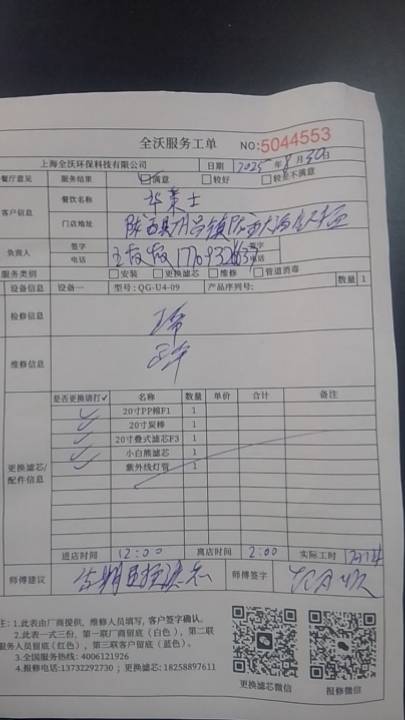 全沃服务工单 NO:5044553
上海全沃环保科技有限公司 日期 2025年8月30日
餐厅意见 服务结果 满意 较好 较差不满意
客户信息 餐饮名称 华莱士
门店地址
负责人 签字 签字
电话 电话
服务类别 安装 更换滤芯 维修 管道消毒
设备信息 设备一 型号: QG-U4-09 产品序列号: 数量 1
检修信息 正常
维修信息
是否更换请打✓ 名称 数量 单价 合计 备注
✓ 20寸PP棉F1 1
✓ 20寸炭棒 1
✓ 20寸叠式滤芯F3 1
✓ 小白熊滤芯 1
紫外线灯管 1
更换滤芯/配件信息
进店时间 12:00 离店时间 2:00 实际工时
师傅建议 师傅签字
注: 1.此表由厂商提供, 维修人员填写, 客户签字确认。
2.此表一式三份, 第一联厂商留底(白色), 第二联
服务人员留底(红色), 第三联客户留底(蓝色)。
3.全国服务热线: 4006121926
4.报修电话: 13732292730; 更换滤芯: 18258897611
更换滤芯微信 报修微信